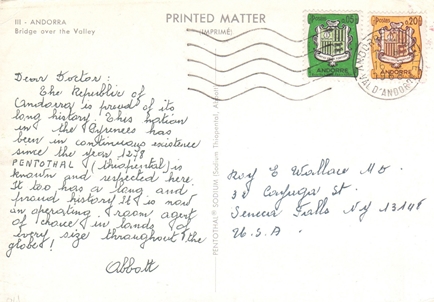 III - ANDORRA
Bridge over the Valley
PRINTED MATTER
(IMPRIMÉ)
Postes 0,05
ANDORRE
Postes 0,20
ANDORRE
Dear Doctor:
The Republic of
Andorra is proud of its
long history. This nation
in the Pyrenees has
been in continuous existence
since the year 1278
PENTOTHAL (thiopental) is
known and respected here.
It too has a long and
proud history. It is now
an operating room agent
of choice in lands of
every size throughout the
globe!
Abbott
PENTOTHAL® SODIUM (Sodium Thiopental, Abbott)
Roy E Wallace MD
32 Cayuga St.
Seneca Falls NY 13148
U.S.A.